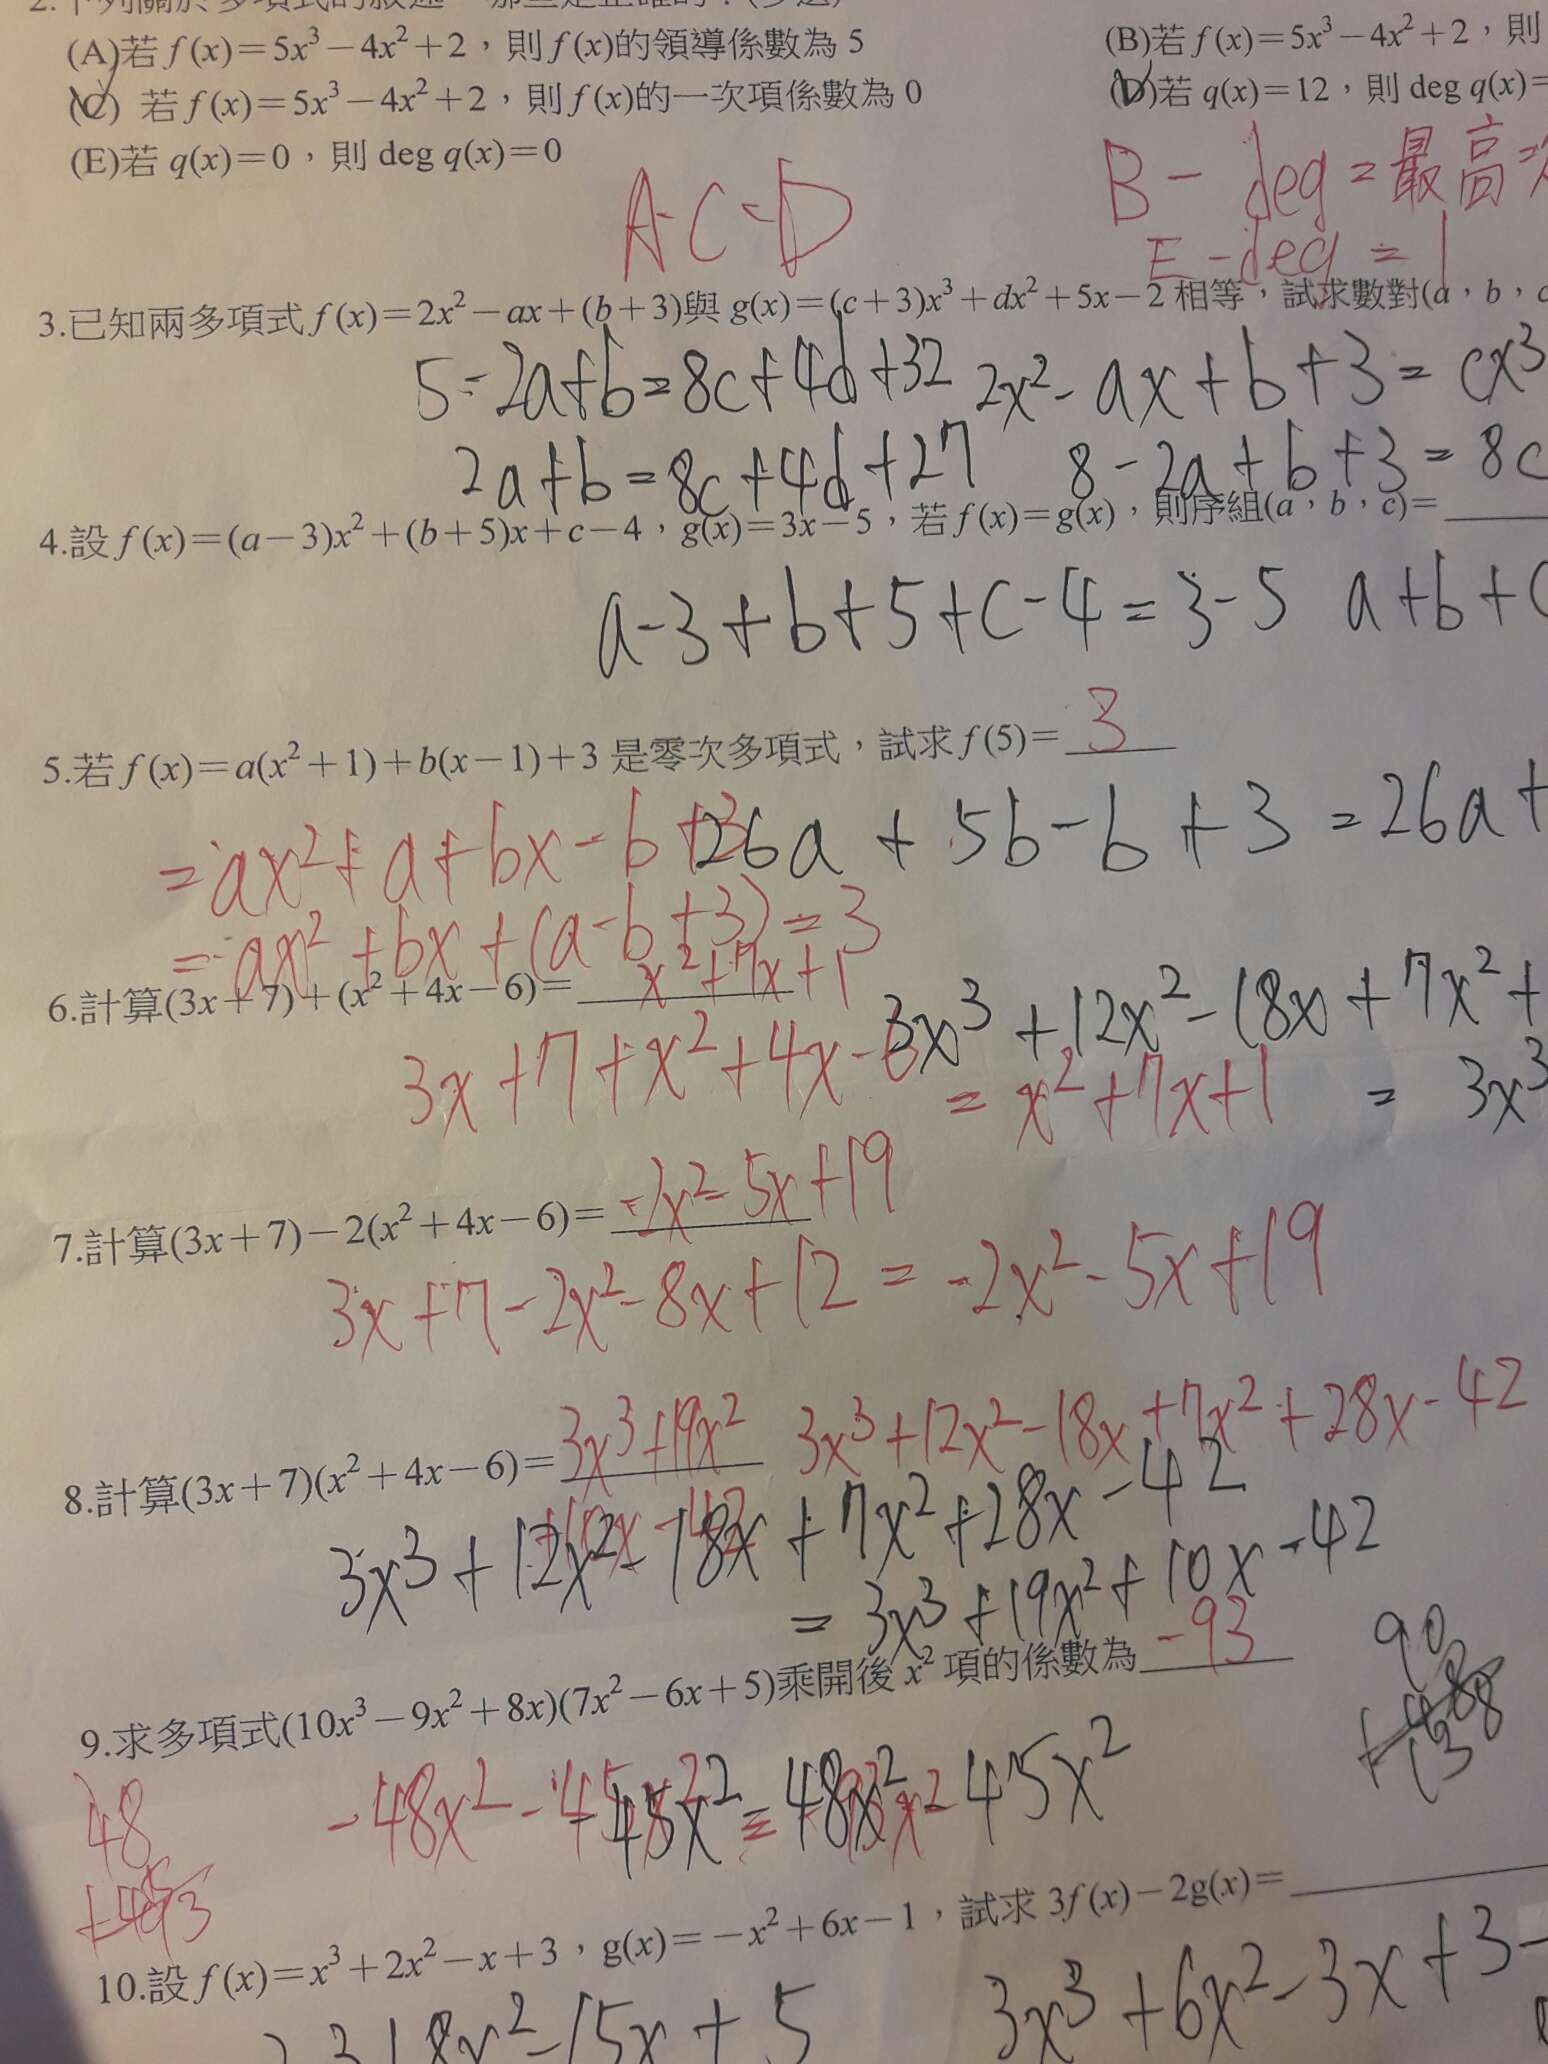 (A)若 f(x)=5x³-4x²+2，則 f(x)的領導係數為 5
(B)若 f(x)=5x³-4x²+2，則
(C) 若 f(x)=5x³-4x²+2，則 f(x)的一次項係數為 0
(D)若 q(x)=12，則 deg q(x)=
(E)若 q(x)=0，則 deg q(x)=0
A-C-D
B - deg = 最高
E - deg = 1
3.已知兩多項式 f(x)=2x²-ax+(b+3)與 g(x)=(c+3)x³+dx²+5x-2 相等，試求數對(a，b，c
5-2a+b=8c+4d+32
2x²-ax+b+3=cx³
2a+b=8c+4d+27
8-2a+b+3=8c
4.設 f(x)=(a-3)x²+(b+5)x+c-4，g(x)=3x-5，若 f(x)=g(x)，則序組(a，b，c)=
a-3+b+5+c-4=3-5
a+b+c
5.若 f(x)=a(x²+1)+b(x-1)+3 是零次多項式，試求 f(5)= 3
=ax²+a+bx-b+3
26a+5b-b+3=26a+
=ax²+bx+(a-b+3)=3
6.計算(3x+7)+(x²+4x-6)= x²+7x+1
3x³+12x²-18x+7x²+
3x+7+x²+4x-6
=x²+7x+1
=3x³
7.計算(3x+7)-2(x²+4x-6)= -2x²-5x+19
3x+7-2x²-8x+12=-2x²-5x+19
8.計算(3x+7)(x²+4x-6)= 3x³+19x²
+10x-42
3x³+12x²-18x+7x²+28x-42
3x³+12x²-18x+7x²+28x-42
=3x³+19x²+10x-42
9.求多項式(10x³-9x²+8x)(7x²-6x+5)乘開後 x² 項的係數為 -93
90
48
-48x²-45x²=-93x²
-45x²
48x²-45x²
10.設 f(x)=x³+2x²-x+3，g(x)=-x²+6x-1，試求 3f(x)-2g(x)=
3x³+6x²-3x+3-
8x²-15x+5